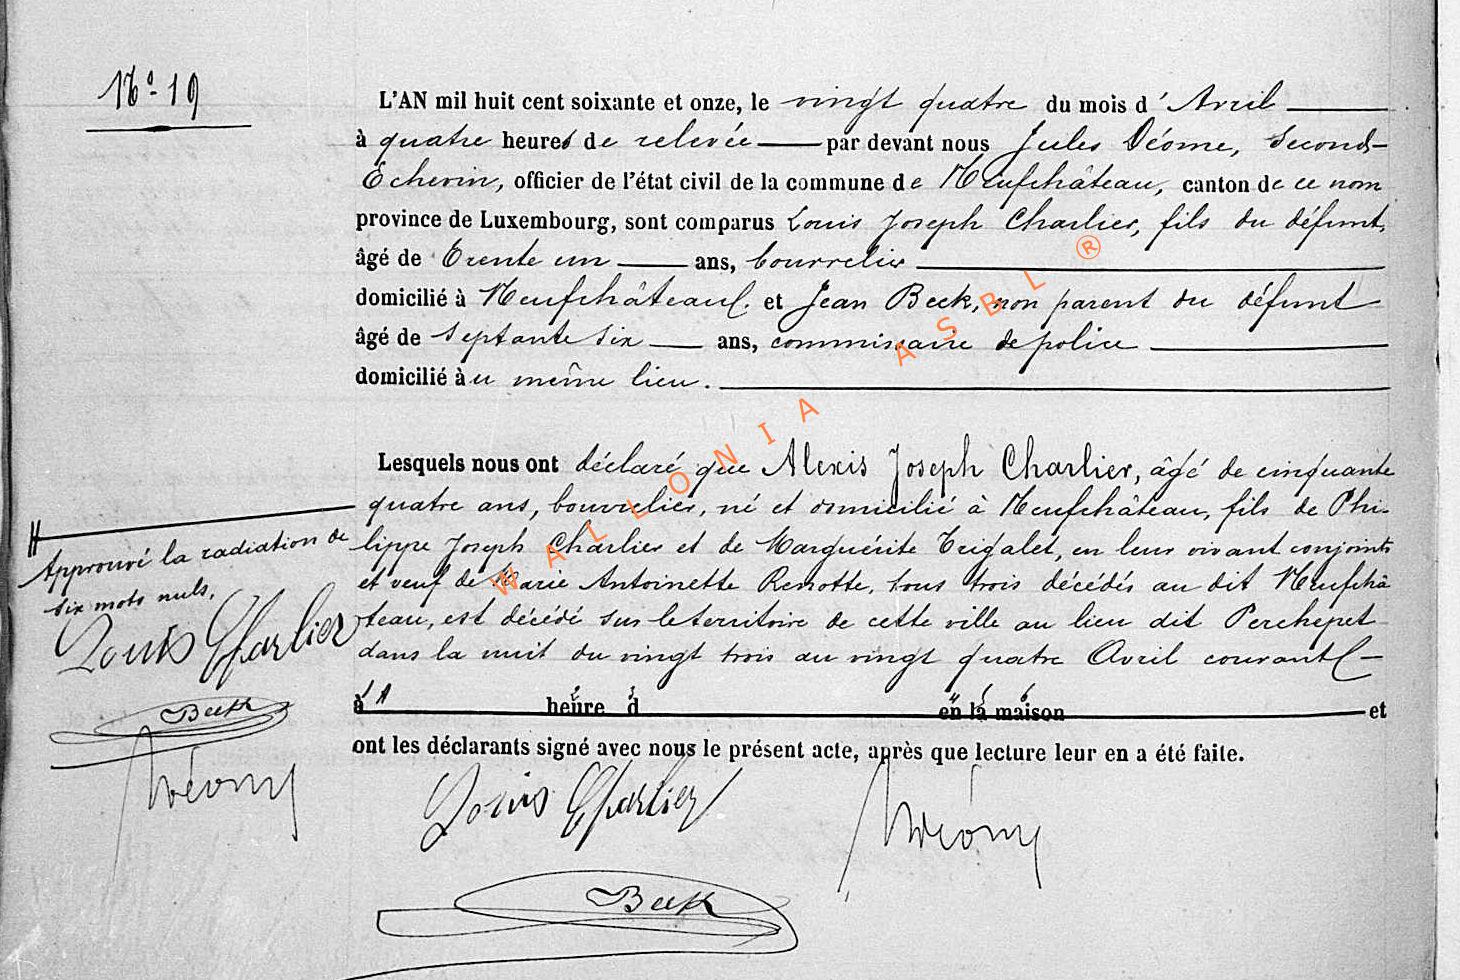 N° 19
L'AN mil huit cent soixante et onze, le vingt quatre du mois d'Avril
à quatre heures de relevée par devant nous Jules Déome, Second
Echevin, officier de l'état civil de la commune de Neufchâteau, canton de ce nom
province de Luxembourg, sont comparus Louis Joseph Charlier, fils du défunt,
âgé de trente un ans, bourrelier
domicilié à Neufchâteau. et Jean Beck, non parent du défunt
âgé de septante six ans, commissaire de police
domicilié au même lieu.
Lesquels nous ont déclaré que Alexis Joseph Charlier, âgé de cinquante
quatre ans, bourrelier, né et domicilié à Neufchâteau, fils de Phi-
lippe Joseph Charlier et de Marguérite Trigalet, en leur vivant conjoints
et veuf de Marie Antoinette Renotte, tous trois décédés au dit Neufchâ
teau, est décédé sur le territoire de cette ville au lieu dit Perchepet
dans la nuit du vingt trois au vingt quatre Avril courant
à heure d en la maison et
ont les déclarants signé avec nous le présent acte, après que lecture leur en a été faite.
Louis Charlier
Déome
Beck
Approuvé la radiation de
six mots nuls.
Louis Charlier
Beck
Déome
WALLONIA ASBL ®